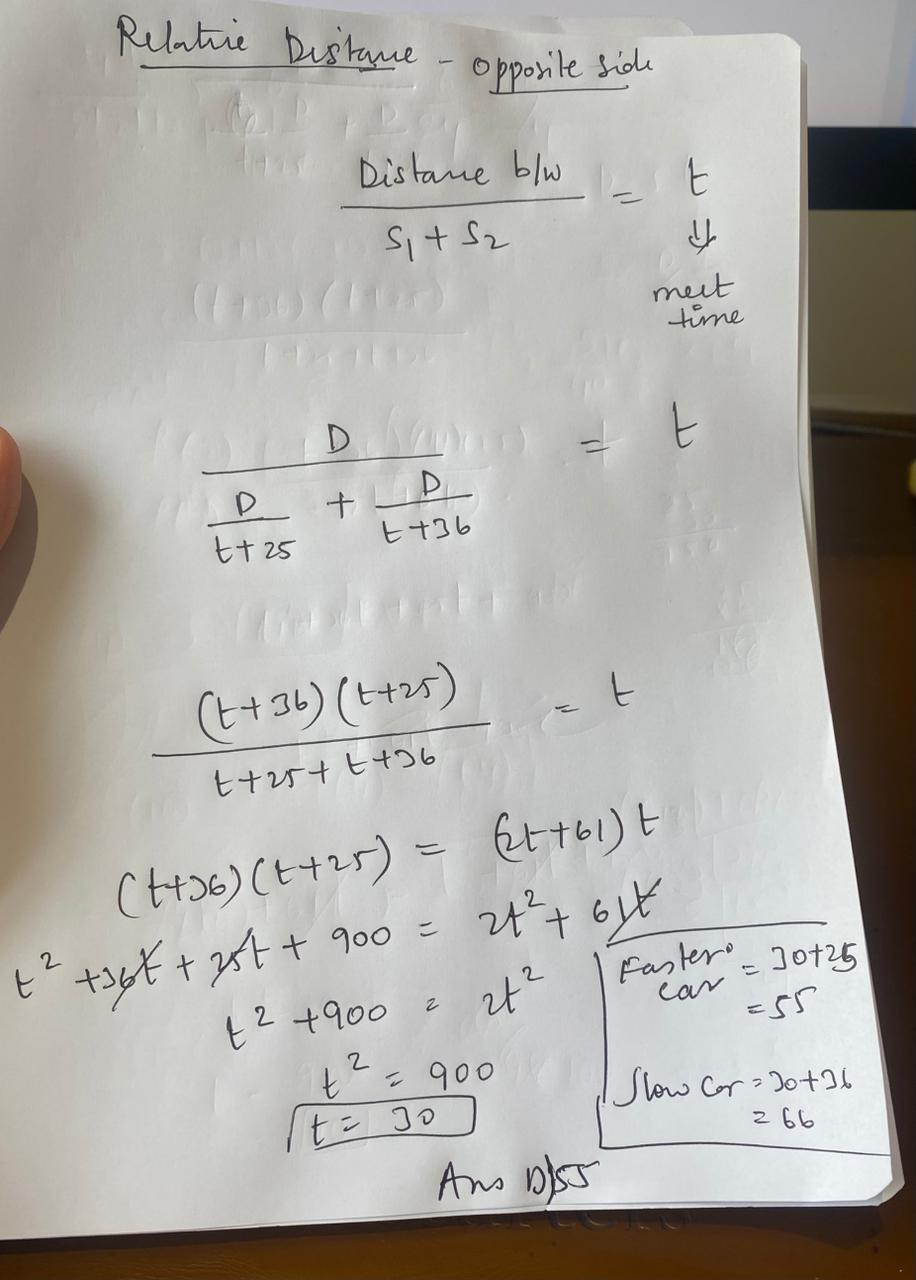 Relative Distance - opposite side
Distance b/w
S₁ + S₂
= t
⇓
meet
time
D
= t
D
t+25
+
D
t+36
(t+36) (t+25)
= t
t+25+ t+36
(t+36) (t+25) = (2t+61) t
t² +36t + 25t + 900 = 2t² + 61t
t² +900 = 2t²
t² = 900
t = 30
Faster car = 30+25
= 55
Slow Car = 30+36
= 66
Ans D/55